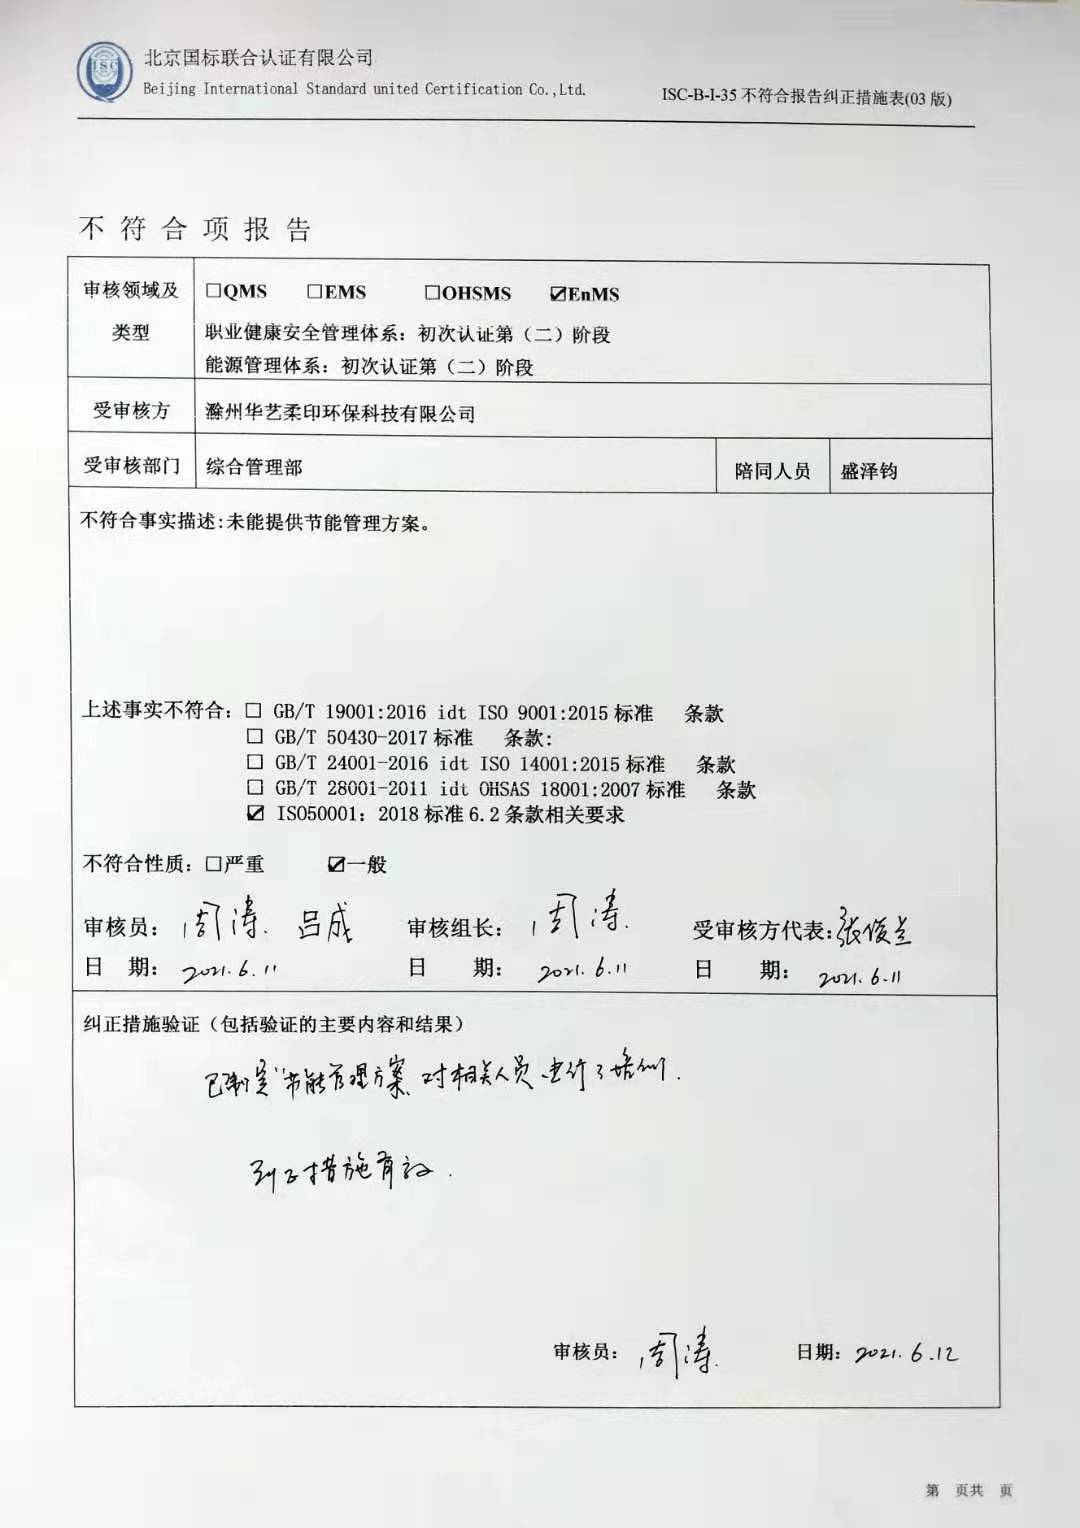 ISC
北京国标联合认证有限公司
Beijing International Standard united Certification Co.,Ltd.
ISC-B-I-35 不符合报告纠正措施表(03 版)
不符合项报告
审核领域及类型
☐QMS ☐EMS ☐OHSMS ☑EnMS
职业健康安全管理体系：初次认证第（二）阶段
能源管理体系：初次认证第（二）阶段
受审核方 滁州华艺柔印环保科技有限公司
受审核部门 综合管理部 陪同人员 盛泽钧
不符合事实描述:未能提供节能管理方案。
上述事实不符合：☐ GB/T 19001:2016 idt ISO 9001:2015 标准 条款
☐ GB/T 50430-2017 标准 条款:
☐ GB/T 24001-2016 idt ISO 14001:2015 标准 条款
☐ GB/T 28001-2011 idt OHSAS 18001:2007 标准 条款
☑ ISO50001：2018 标准 6.2 条款相关要求
不符合性质：☐严重 ☑一般
审核员：周涛. 吕成 审核组长：周涛. 受审核方代表:张俊兰
日 期：2021.6.11 日 期：2021.6.11 日 期：2021.6.11
纠正措施验证（包括验证的主要内容和结果）
已制定“节能管理方案,对相关人员进行了培训.
纠正措施有效.
审核员：周涛. 日期：2021.6.12
第 页共 页